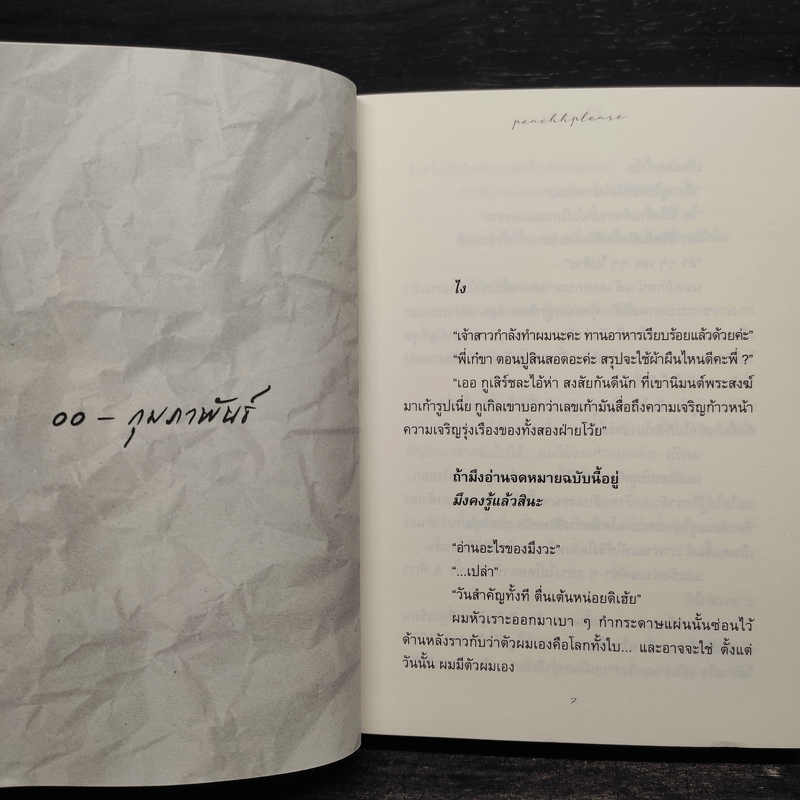 00 – กุมภาพันธ์
peachhplease
ไง
“เจ้าสาวกำลังทำผมนะคะ ทานอาหารเรียบร้อยแล้วด้วยค่ะ”
“พี่เก๋ขา ตอนปูสินสอดอะค่ะ สรุปจะใช้ผ้าผืนไหนดีคะพี่ ?”
“เออ กูเสิร์ชละไอ้ห่า สงสัยกันดีนัก ที่เขานิมนต์พระสงฆ์
มาเก้ารูปเนี่ย กูเกิลเขาบอกว่าเลขเก้ามันสื่อถึงความเจริญก้าวหน้า
ความเจริญรุ่งเรืองของทั้งสองฝ่ายโว้ย”
ถ้ามึงอ่านจดหมายฉบับนี้อยู่
มึงคงรู้แล้วสินะ
“อ่านอะไรของมึงวะ”
“...เปล่า”
“วันสำคัญทั้งที ตื่นเต้นหน่อยดิเฮ้ย”
ผมหัวเราะออกมาเบา ๆ กำกระดาษแผ่นนั้นซ่อนไว้
ด้านหลังราวกับว่าตัวผมเองคือโลกทั้งใบ... และอาจจะใช่ ตั้งแต่
วันนั้น ผมมีตัวผมเอง
7